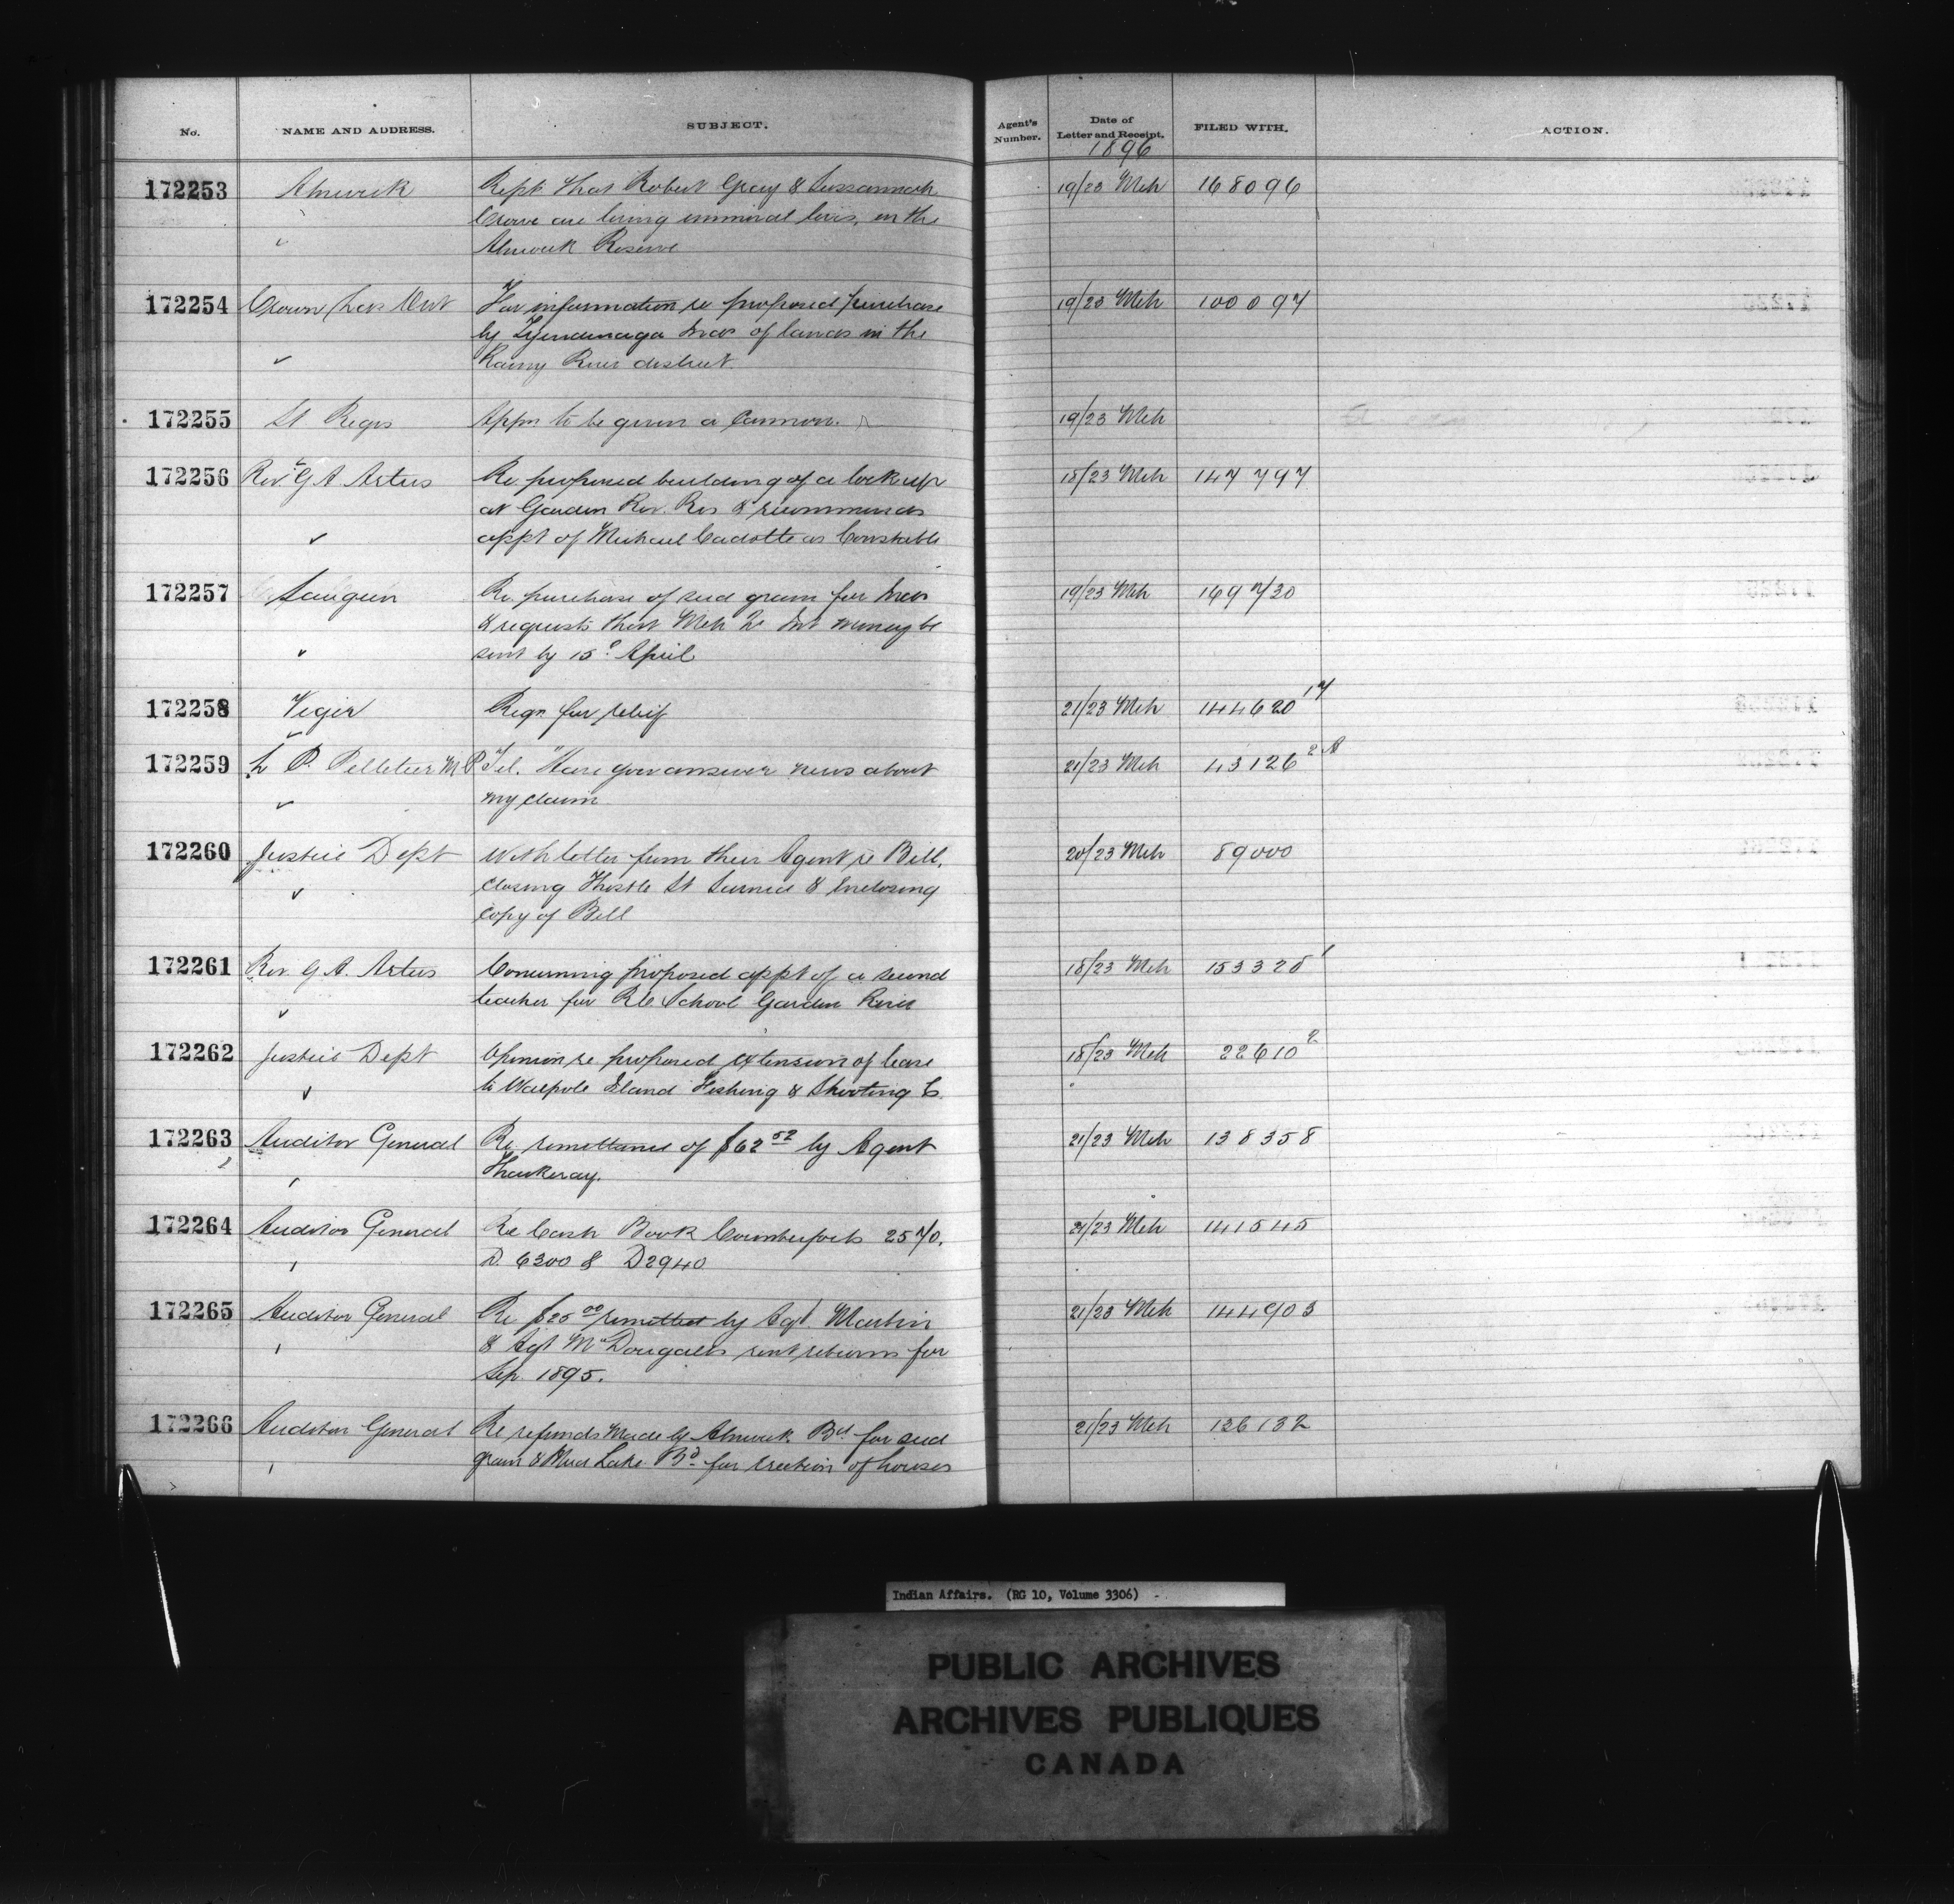 No. NAME AND ADDRESS. SUBJECT. Agent's Number. Date of Letter and Receipt. FILED WITH. ACTION.
1896
172253 Alnwick Rept that Robert Gray & Sussannah 19/23 Mch 168096
Crowe are living immoral lives, on the
Alnwick Reserve
172254 Crown Lds Dept For information re proposed purchase 19/23 Mch 100097
by Tyendinaga Inds of lands in the
Rainy River district.
172255 St Regis Appn to be given a Cannon. 19/23 Mch
172256 Rev. G A Artus Re proposed building of a lock up 18/23 Mch 147797
at Garden Riv. Res & recommends
appt of Michael Cadotte as Constable
172257 Saugeen Re purchase of seed grain for Inds 19/23 Mch 169730
& requests that Mch Int money be
sent by 15 April
172258 Viger Reqn for relief 21/23 Mch 144620 17
172259 L P. Pelletier M P Tel. "Have you answer news about 21/23 Mch 43126 2A
my claim
172260 Justice Dept With letter from their Agent re Bill, 20/23 Mch 89000
closing Thistle St Sarnia & Enclosing
copy of Bill
172261 Rev. G A. Artus Concerning proposed appt of a second 18/23 Mch 153328 1
teacher for RC School Garden River
172262 Justice Dept Opinion re proposed extension of lease 18/23 Mch 22610 2
to Walpole Island Fishing & Shooting C.
172263 Auditor General Re remittance of $62 52 by Agent 21/23 Mch 138358
Thackeray.
172264 Auditor General Re Cash Book Counterfoils 2570. 21/23 Mch 141545
D. 6300 & D2940
172265 Auditor General Re $25 00 remitted by Agt Martin 21/23 Mch 144903
& Agt McDougalls rent returns for
Sep. 1895.
172266 Auditor General Re refunds made by Alnwick Bd for seed 21/23 Mch 126132
grain & Mud Lake Bd for erection of houses
Indian Affairs. (RG 10, Volume 3306)
PUBLIC ARCHIVES
ARCHIVES PUBLIQUES
CANADA